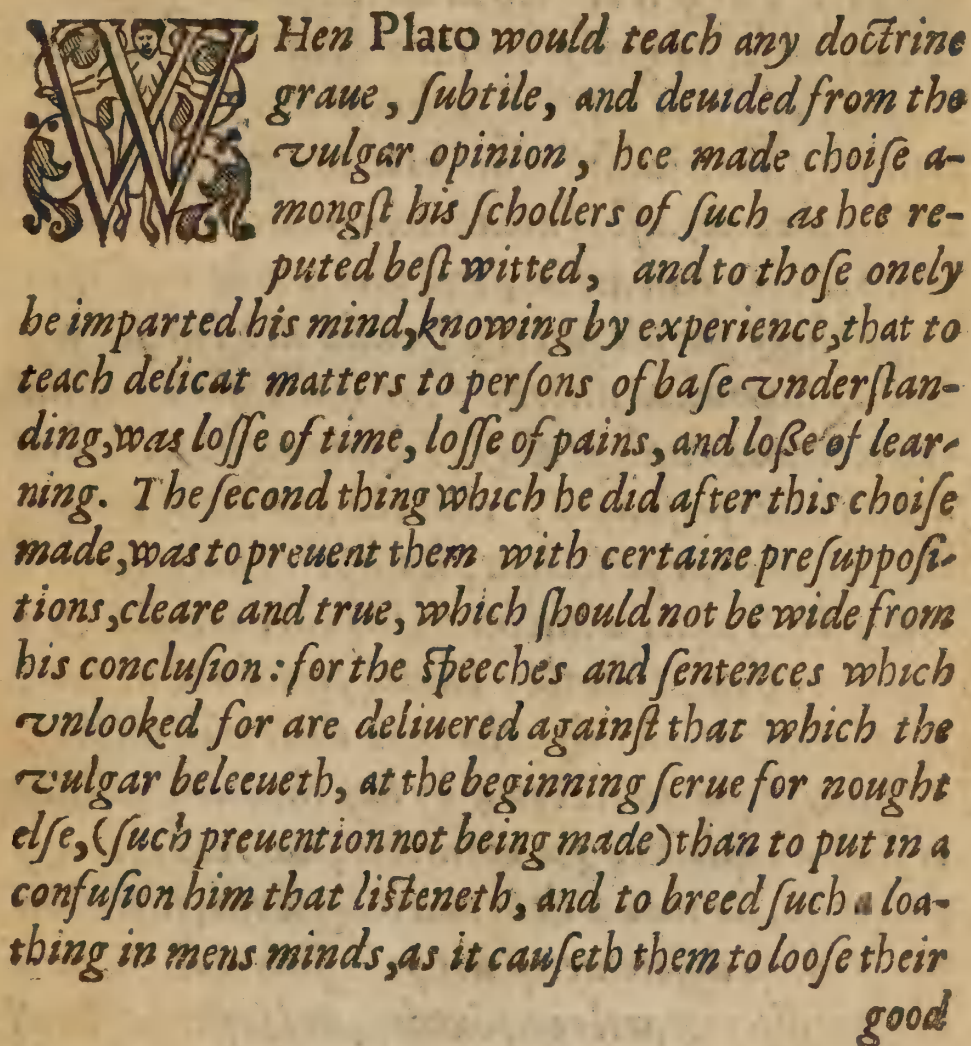 WHen Plato would teach any doctrine
graue, ſubtile, and deuided from the
vulgar opinion, hee made choiſe a-
mongſt his ſchollers of ſuch as hee re-
puted beſt witted, and to thoſe onely
he imparted his mind, knowing by experience, that to
teach delicat matters to perſons of baſe vnderſtan-
ding, was loſſe of time, loſſe of pains, and loße of lear-
ning. The ſecond thing which he did after this choiſe
made, was to preuent them with certaine preſuppoſi-
tions, cleare and true, which ſhould not be wide from
his concluſion: for the ſpeeches and ſentences which
vnlooked for are deliuered againſt that which the
vulgar beleeueth, at the beginning ſerue for nought
elſe, (ſuch preuention not being made) than to put in a
confuſion him that liſteneth, and to breed ſuch a loa-
thing in mens minds, as it cauſeth them to looſe their
good